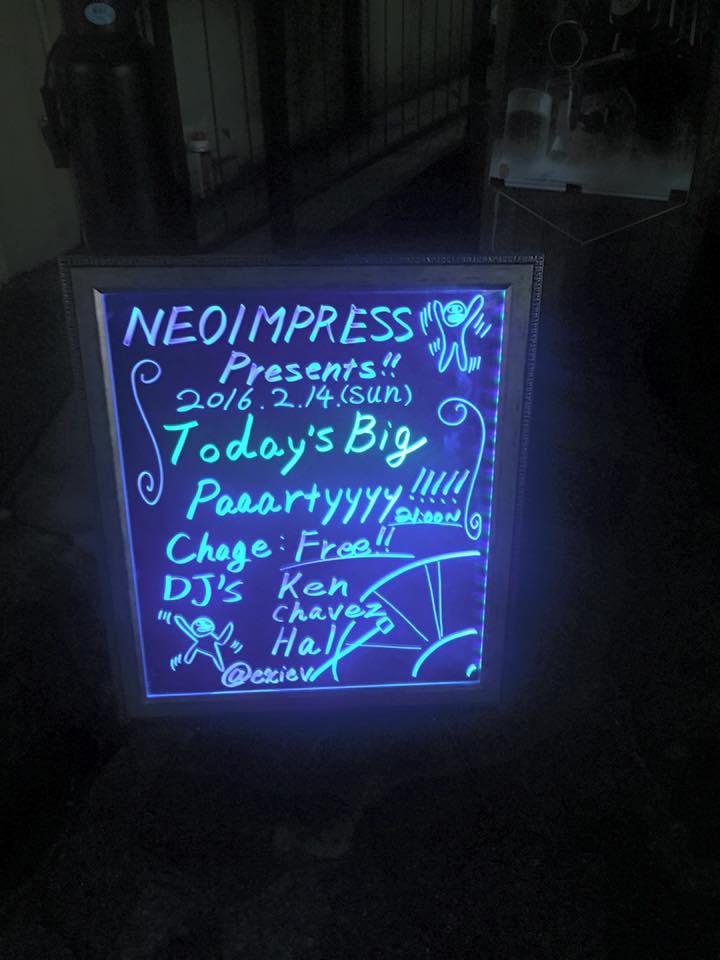 NEOIMPRESS
Presents!!
2016.2.14.(sun)
Today's Big
Paaartyyyy!!!!!
21:00~
Chage: Free!!
DJ's Ken
chavez
Hal
@exiev